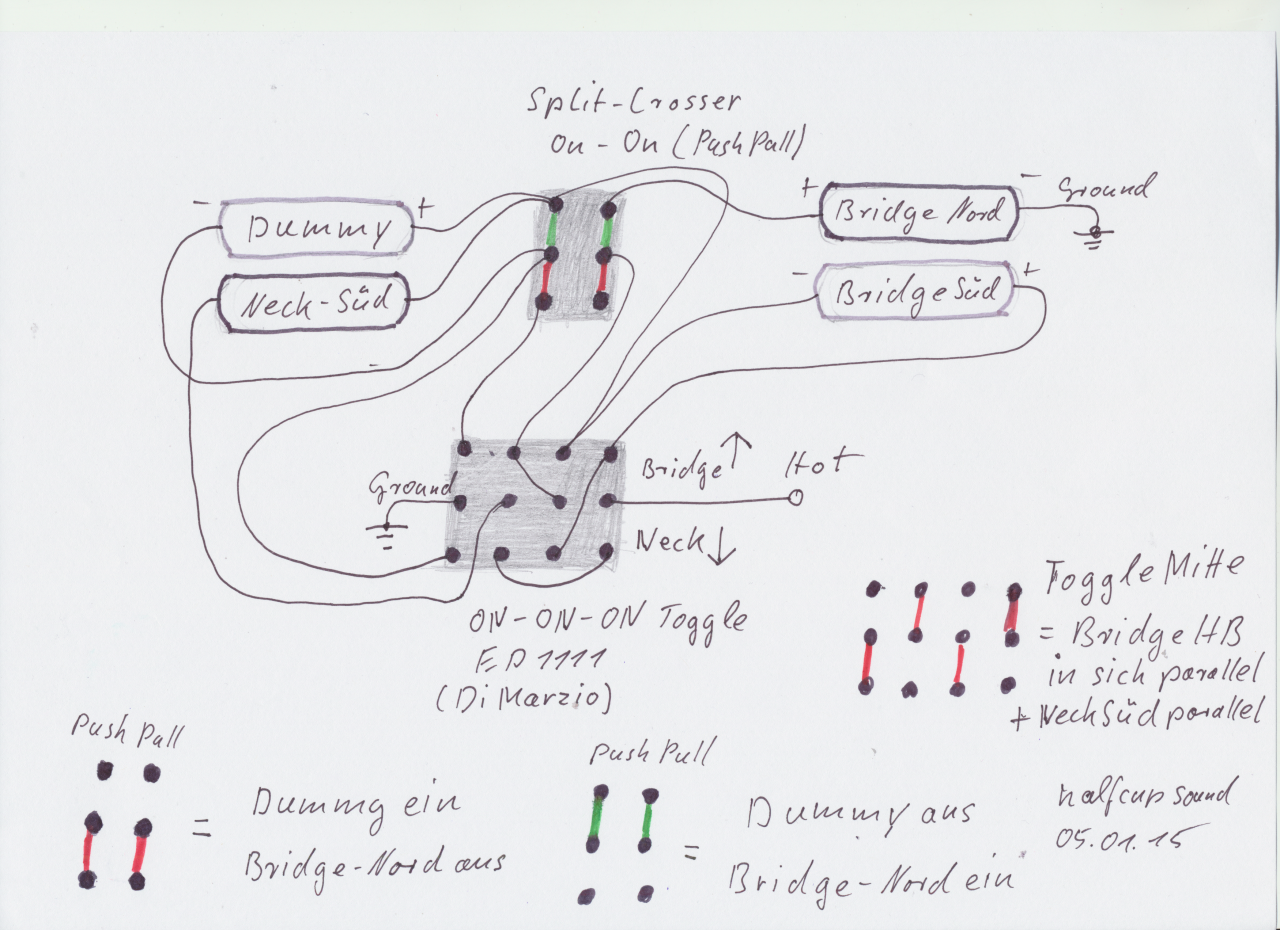 Split-Crosser
On-On (PushPull)
- Dummy +
Neck-Süd
+ Bridge Nord - Ground
- Bridge Süd +
-
Bridge ↑ Hot
Ground
Neck ↓
ON-ON-ON Toggle
EP1111
(DiMarzio)
Toggle Mitte
= Bridge HB
in sich parallel
+ Neck Süd parallel
Push Pull
= Dummy ein
Bridge-Nord aus
Push Pull
= Dummy aus
Bridge-Nord ein
halfcup sound
05.01.15